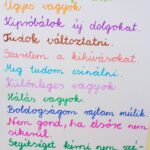 Ügyes vagyok.
Kipróbálok új dolgokat.
Tudok változtatni.
Szeretem a kihívásokat.
Meg tudom csinálni.
Különleges vagyok.
Hálás vagyok.
Boldogságom rajtam múlik.
Nem gond, ha elsőre nem
sikerül.
Segítséget kérni nem szé-